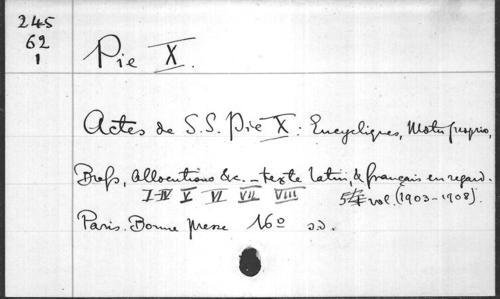 245
62
1
Pie X.
Actes de S.S. Pie X: Encycliques, Motu proprio,
Brefs, Allocutions &c. – texte latin, & français en regard.
I-IV V VI VII VIII vol. (1903-1908).
Paris. Bonne presse 16º s.d.